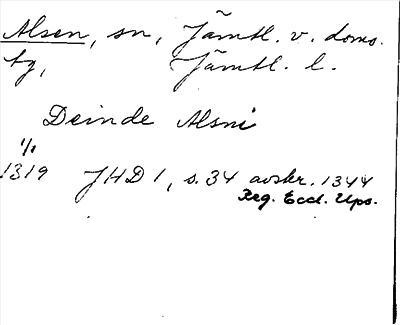 Alsen, sn, Jämtl. v. doms.
tg, Jämtl. l.
Deinde Alsni
1/1
1319 JHD 1, s. 34 avskr. 1344
Reg. Eccl. Ups.